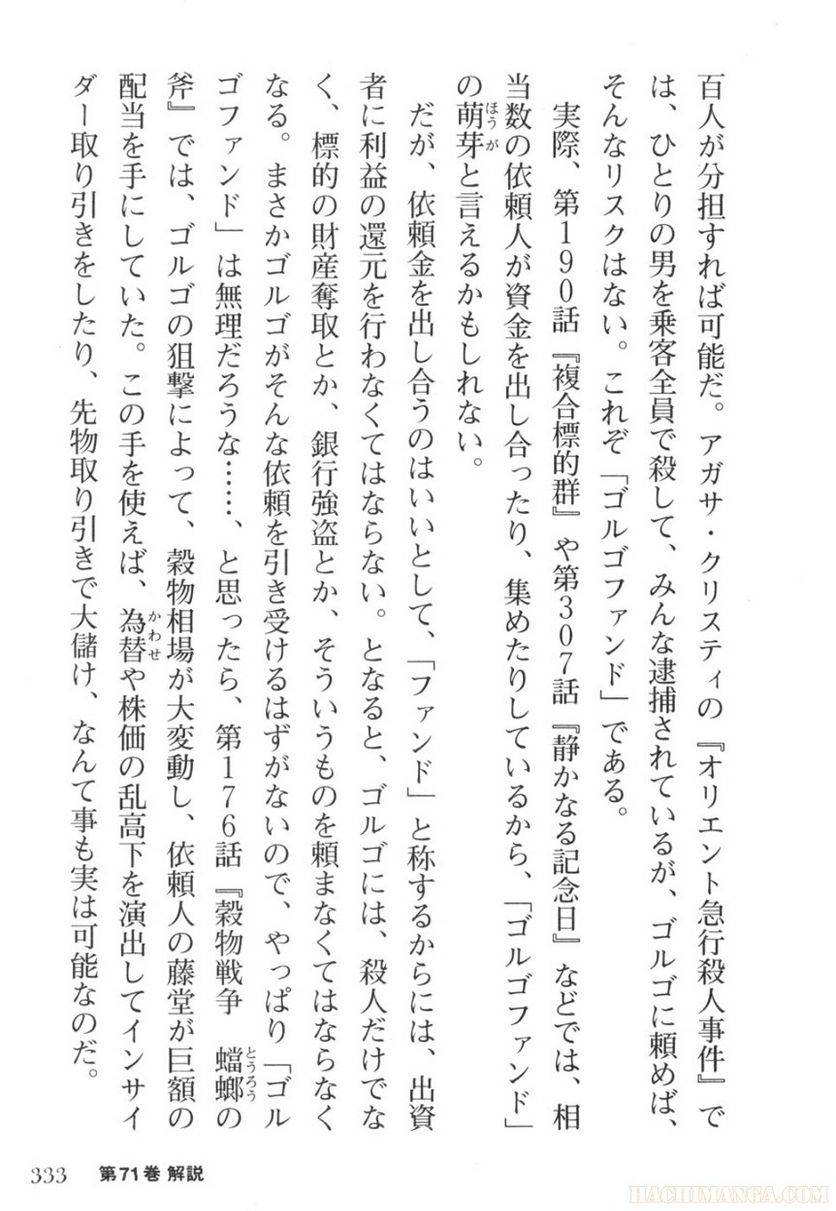 百人が分担すれば可能だ。アガサ・クリスティの『オリエント急行殺人事件』で
は、ひとりの男を乗客全員で殺して、みんな逮捕されているが、ゴルゴに頼めば、
そんなリスクはない。これぞ「ゴルゴファンド」である。
実際、第190話『複合標的群』や第307話『静かなる記念日』などでは、相
当数の依頼人が資金を出し合ったり、集めたりしているから、「ゴルゴファンド」
の萌芽と言えるかもしれない。
だが、依頼金を出し合うのはいいとして、「ファンド」と称するからには、出資
者に利益の還元を行わなくてはならない。となると、ゴルゴには、殺人だけでな
く、標的の財産奪取とか、銀行強盗とか、そういうものを頼まなくてはならなく
なる。まさかゴルゴがそんな依頼を引き受けるはずがないので、やっぱり「ゴル
ゴファンド」は無理だろうな……、と思ったら、第176話『穀物戦争　蟷螂の
斧』では、ゴルゴの狙撃によって、穀物相場が大変動し、依頼人の藤堂が巨額の
配当を手にしていた。この手を使えば、為替や株価の乱高下を演出してインサイ
ダー取り引きをしたり、先物取り引きで大儲け、なんて事も実は可能なのだ。
ほうが
とうろう
かわせ
333 第71巻 解説
HACHIMANGA.COM